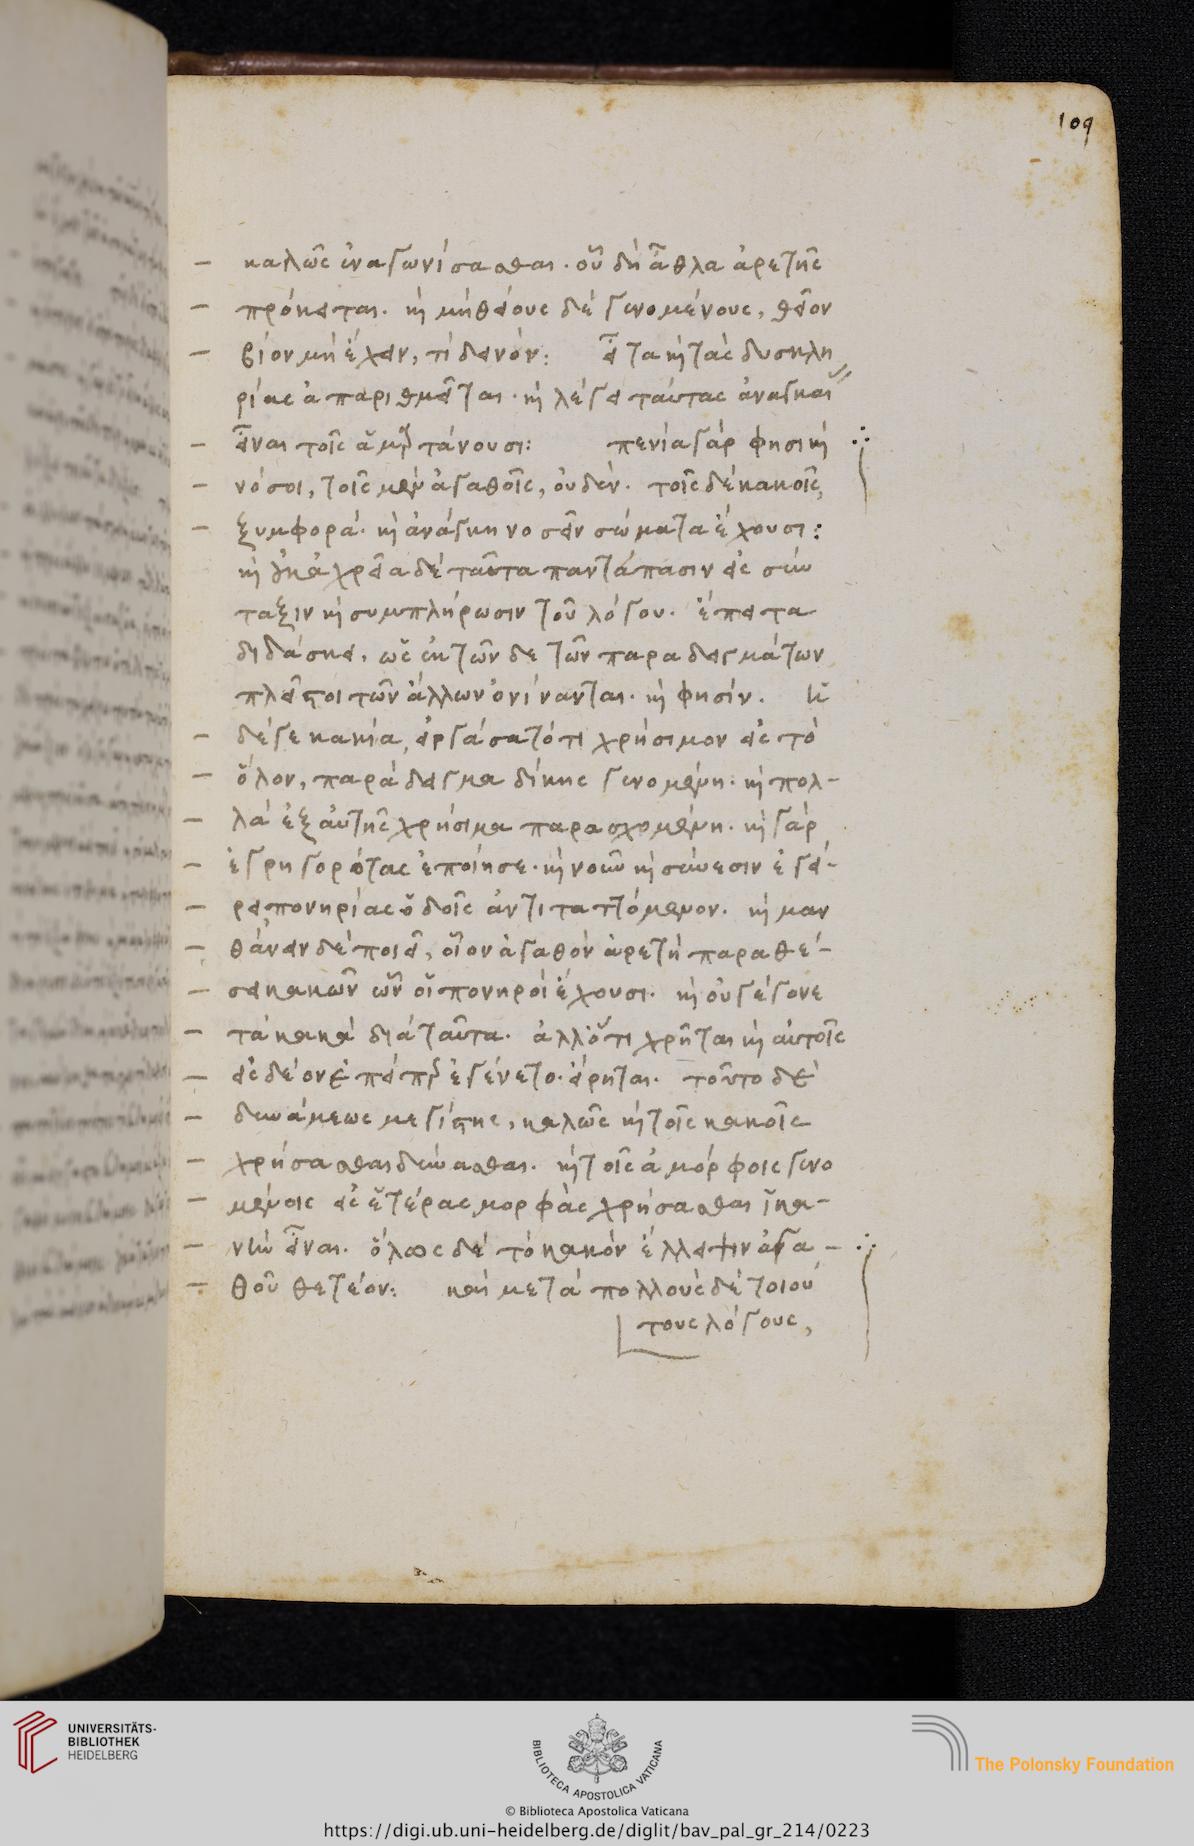 109
καλῶς ἐναγωνίσασθαι. οὗ δὴ ἆθλα ἀρετῆς
πρόκειται. καὶ μὴ θείους δὲ γενομένους, θεῖον
βίον μὴ ἔχειν, τί δεινόν: εἶτα καὶ τὰς δυσκλη
ρίας ἀπαριθμεῖται. καὶ λέγει ταύτας ἀναγκαῖ
εἶναι τοῖς ἁμαρτάνουσι: πενία γάρ φησι καὶ
νόσοι, τοῖς μὲν ἀγαθοῖς, οὐδέν. τοῖς δὲ κακοῖς,
ξυμφορά. καὶ ἀνάγκη νοσεῖν σώματα ἔχουσι:
καὶ οὐκ ἀχρεῖα δὲ ταῦτα παντάπασιν εἰς σύν
ταξιν καὶ συμπλήρωσιν τοῦ λόγου. ἔπειτα
διδάσκει, ὡς ἐκ τῶνδε τῶν παραδειγμάτων
πλεῖστοι τῶν ἄλλων ὀνίνανται. καὶ φησίν. ἡ
δέ γε κακία, εἰργάσατό τι χρήσιμον εἰς τὸ
ὅλον, παράδειγμα δίκης γενομένη. καὶ πολ-
λὰ ἐξ αὐτῆς χρήσιμα παρασχομένη. καὶ γὰρ
ἐγρηγορότας ἐποίησε. καὶ νοῦν καὶ σύνεσιν ἐγεί-
ρει πονηρίας ὁδοῖς ἀντιταττόμενον. καὶ μαν
θάνειν δὲ ποιεῖ, οἷον ἀγαθὸν ἀρετὴ παραθέ-
σει κακῶν ὧν οἱ πονηροὶ ἔχουσι. καὶ οὐ γέγονε
τὰ κακὰ διὰ ταῦτα. ἀλλ' ὅτι χρῆται καὶ αὐτοῖς
εἰς δέον ἐπείπερ ἐγένετο. εἴρηται. τοῦτο δὲ
δυνάμεως μεγίστης, καλῶς καὶ τοῖς κακοῖς
χρήσασθαι δύνασθαι. καὶ τοῖς ἀμόρφοις γενο
μένοις εἰς ἑτέρας μορφὰς χρήσασθαι ἱκα-
νὴν εἶναι. ὅλως δὲ τὸ κακὸν ἔλλειψιν ἀγα-
θοῦ θετέον: καὶ μετὰ πολλοὺς δὲ τοιού
τους λόγους,
UNIVERSITÄTS-
BIBLIOTHEK
HEIDELBERG
BIBLIOTECA APOSTOLICA VATICANA
The Polonsky Foundation
© Biblioteca Apostolica Vaticana
https://digi.ub.uni-heidelberg.de/diglit/bav_pal_gr_214/0223